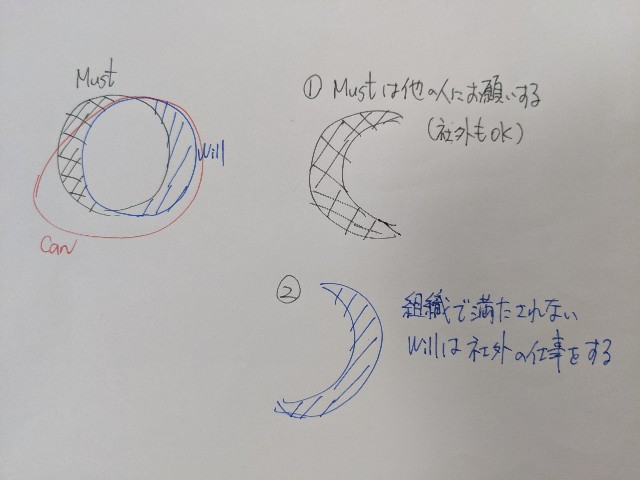 Must
Will
Can
① Mustは他の人にお願いする
(社外もOK)
②
組織で満たされない
Willは社外の仕事をする